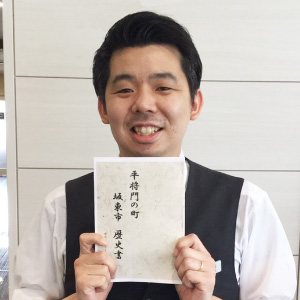 平将門の町
坂東市 歴史書